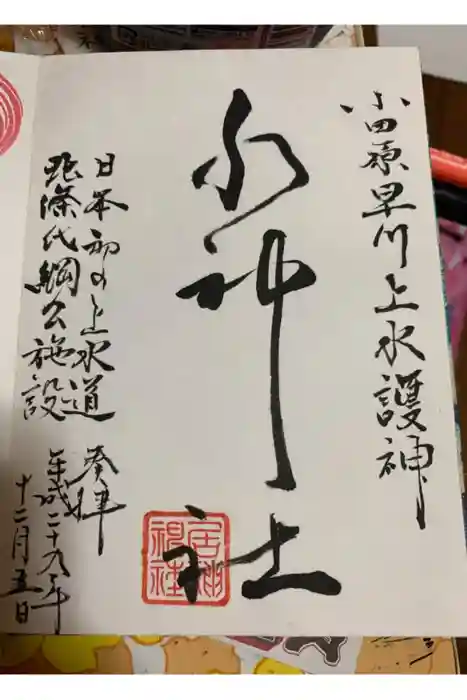 小田原早川上水護神
水神社
日本初の上水道
北條氏綱公施設
奉拝
平成二十九年
十二月五日
居神
神社